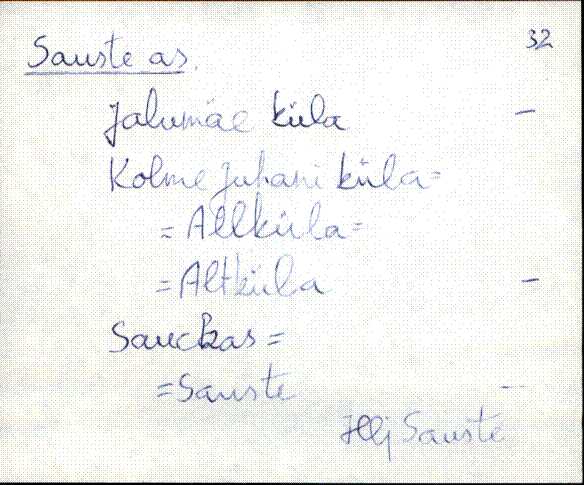 Sauste as. 32
Jalumäe küla –
Kolme Juhani küla =
= Allküla =
= Altküla –
Sauckas =
= Sauste –
Sauste